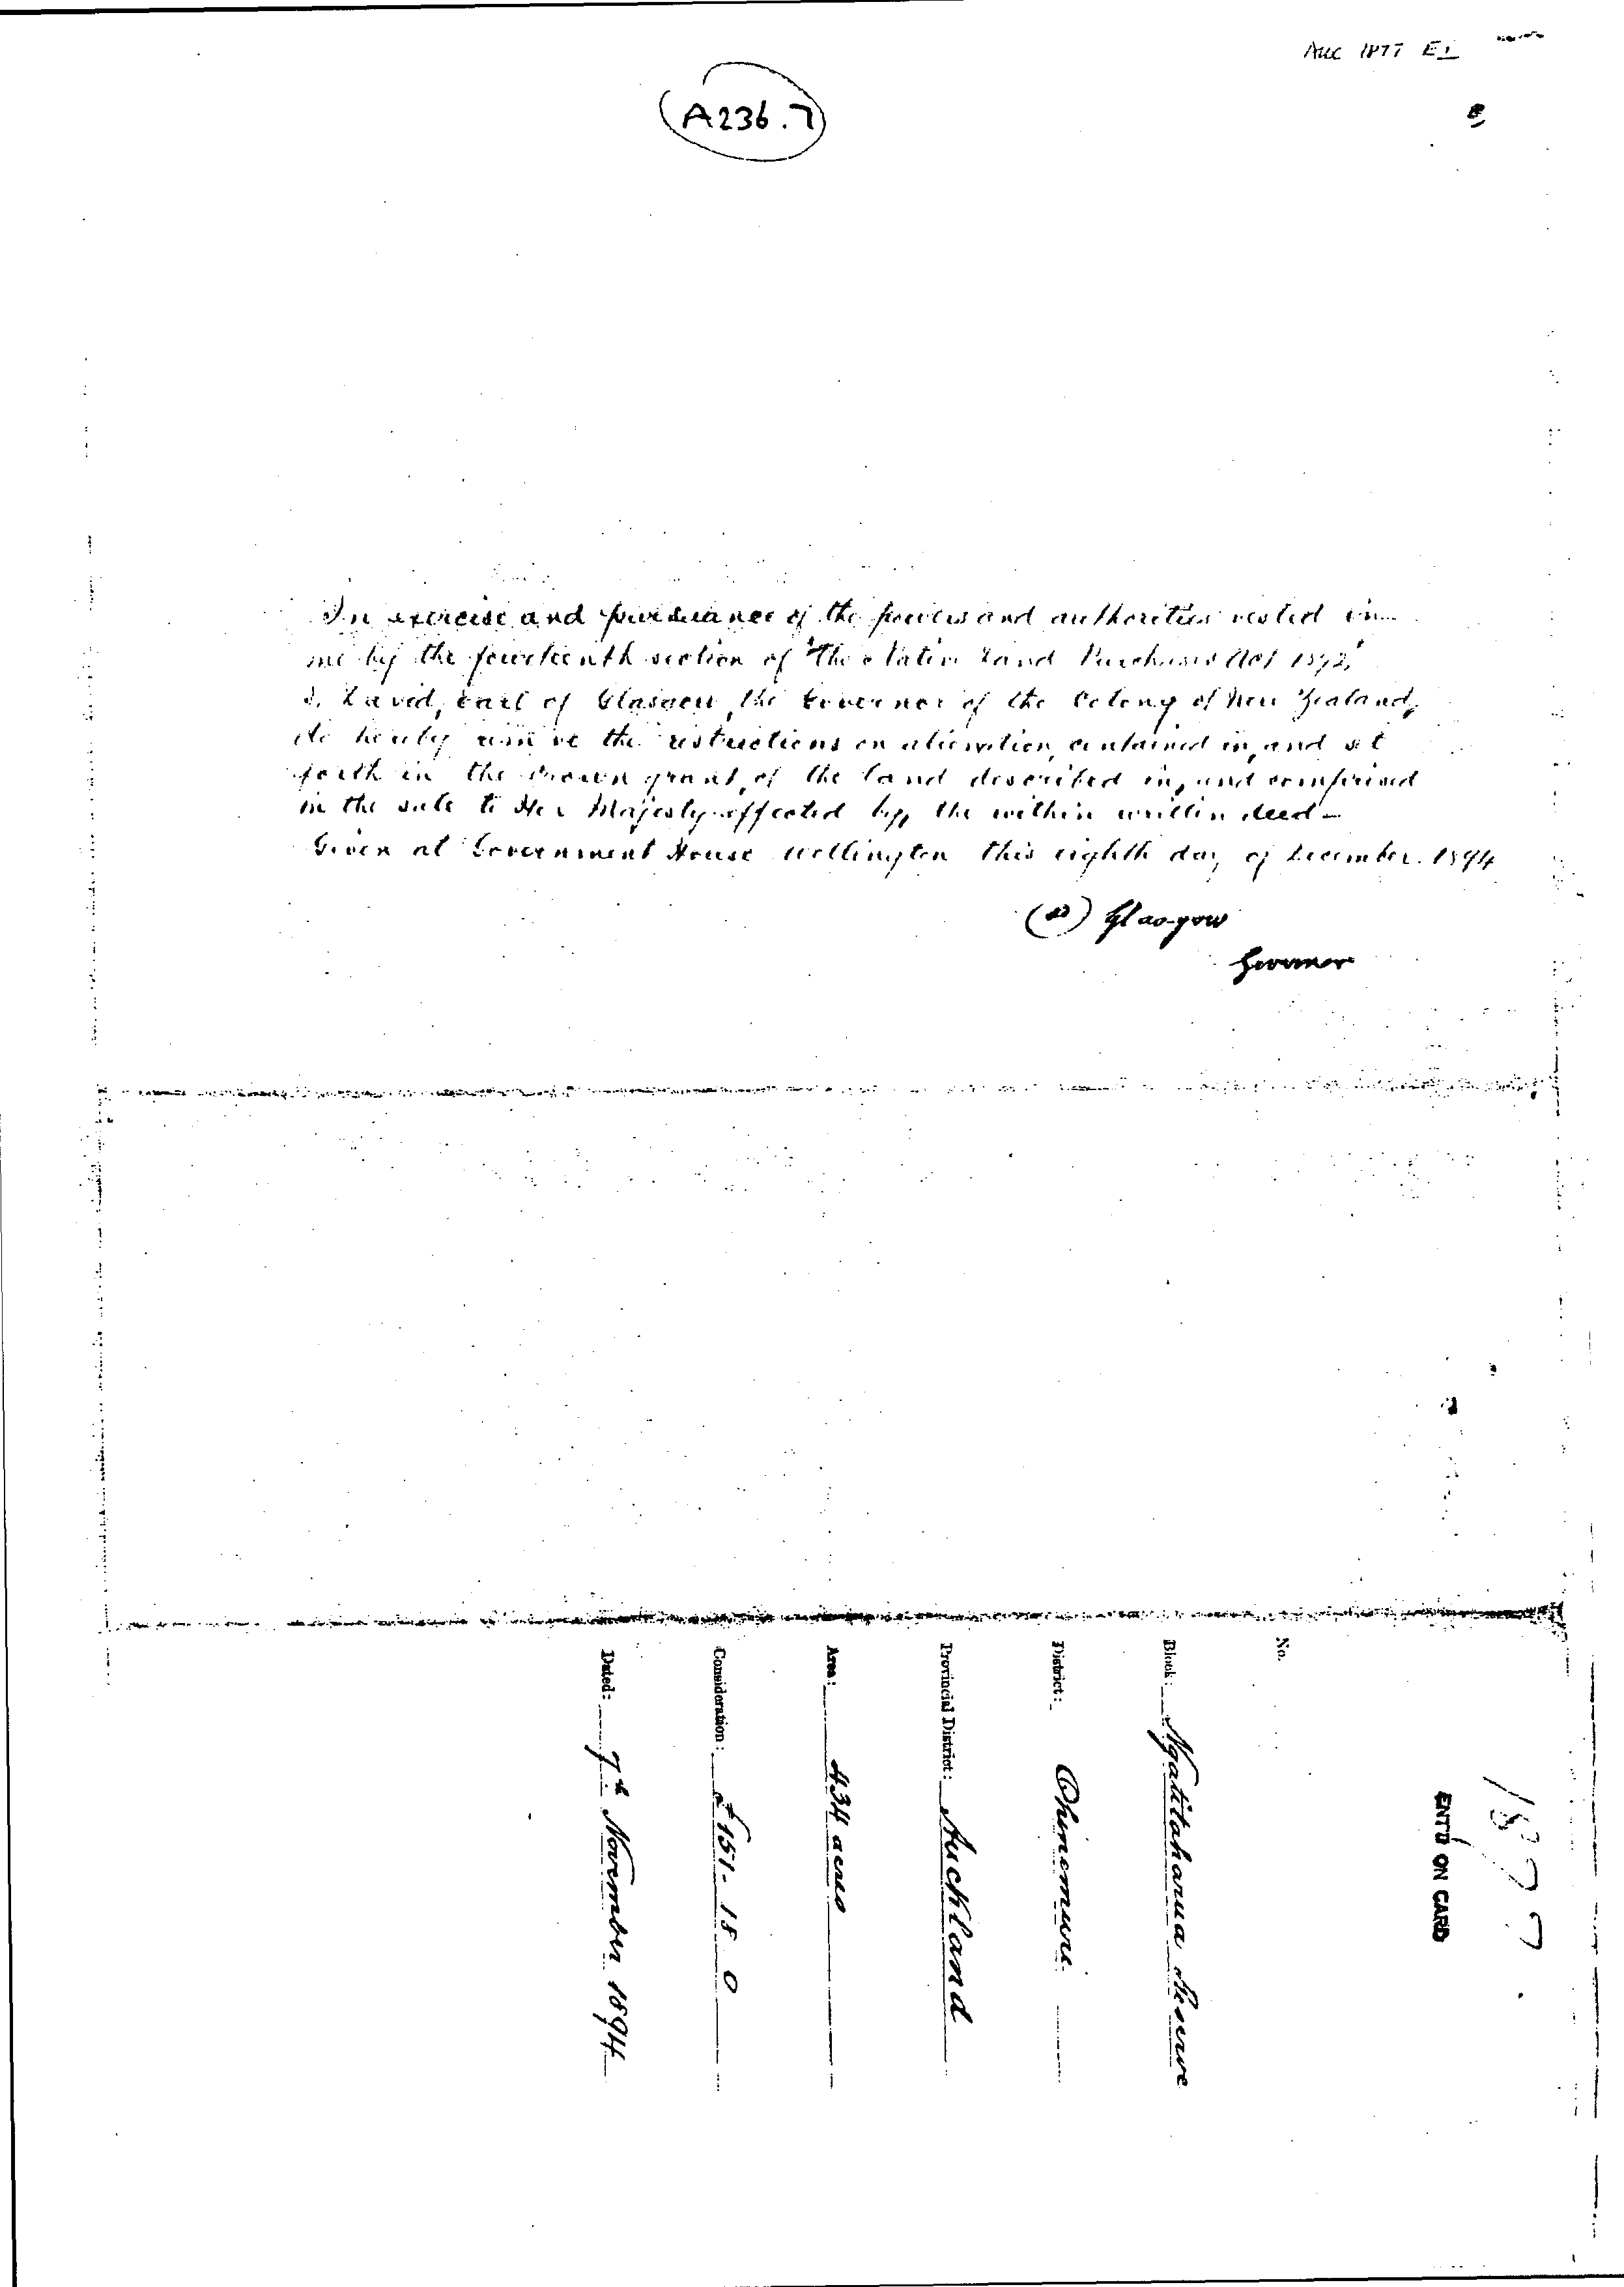 Auc 1877 E1
A236.7
In exercise and pursuance of the powers and authorities vested in
me by the fourteenth section of "The Native Land Purchases Act 1892,"
I, David, Earl of Glasgow, the Governor of the Colony of New Zealand,
do hereby remove the restrictions on alienation, contained in, and set
forth in the Crown grant, of the land described in, and comprised
in the sale to Her Majesty effected by, the within written deed –
Given at Government House Wellington this eighth day of December. 1894
(sd) Glasgow
Governor
1877
ENTD ON CARD
No.
Block: Ngatitaharua Reserve
District: Ohinemuri
Provincial District: Auckland
Area: 434 acres
Consideration: £151. 18 0
Dated: 7th November 1894